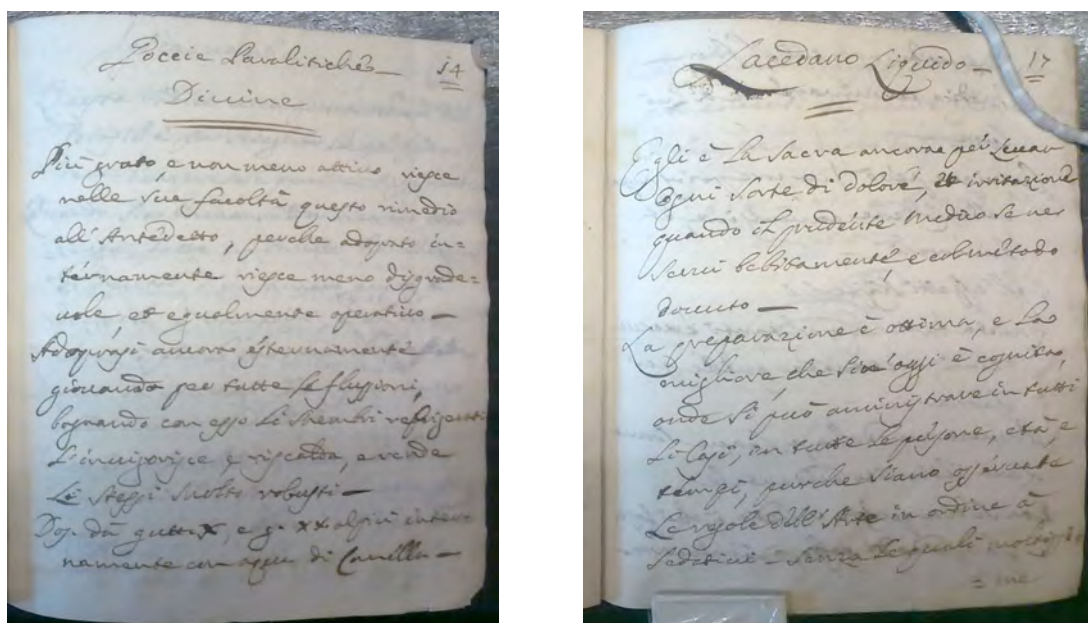 Goccie Paralitiche 14
Divine
Più grato e non meno attivo riesce
nelle sue facoltà questo rimedio
all'Antedetto, perche adoprato in=
ternamente riesce meno disgrade=
uole et egualmente operativo —
Adoprasi ancora esternamente
giouando per tutte le flussioni,
bagnando con esso li Membri
L'inuigorisce e riscalda, e rende
Li stessi molto robusti —
Dos. da gutt. X, e g. XX al più inter=
namente con acqua di Canella —
Laudano Liquido — 17
Egli è La sacra ancora per Leuar
ogni sorte di dolore, et irritazione
quando il prudente Medico se ne
serui debitamente e col metodo
douuto —
La preparazione è ottima, e La
migliore che sin oggi è cognita,
onde si può aministrare in tutti
Li Casi, in tutte Le persone, età, e
tempi, purche siano osseruate
Le regole dell'Arte in ordine à
Sedatiui — senza Le quali